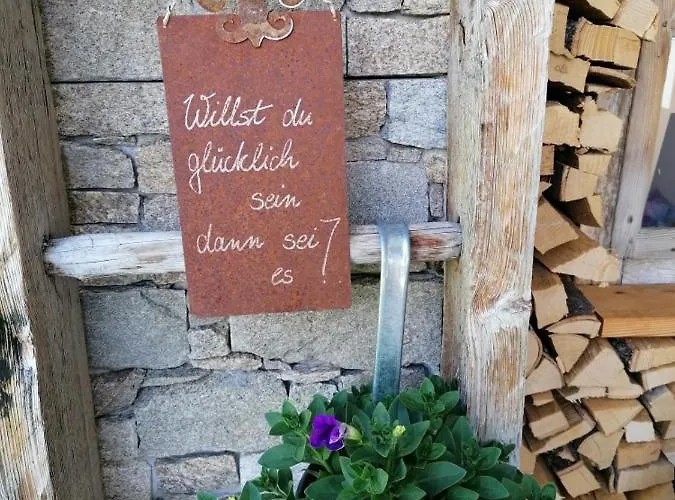 Willst du
glücklich
sein
dann sei
es!